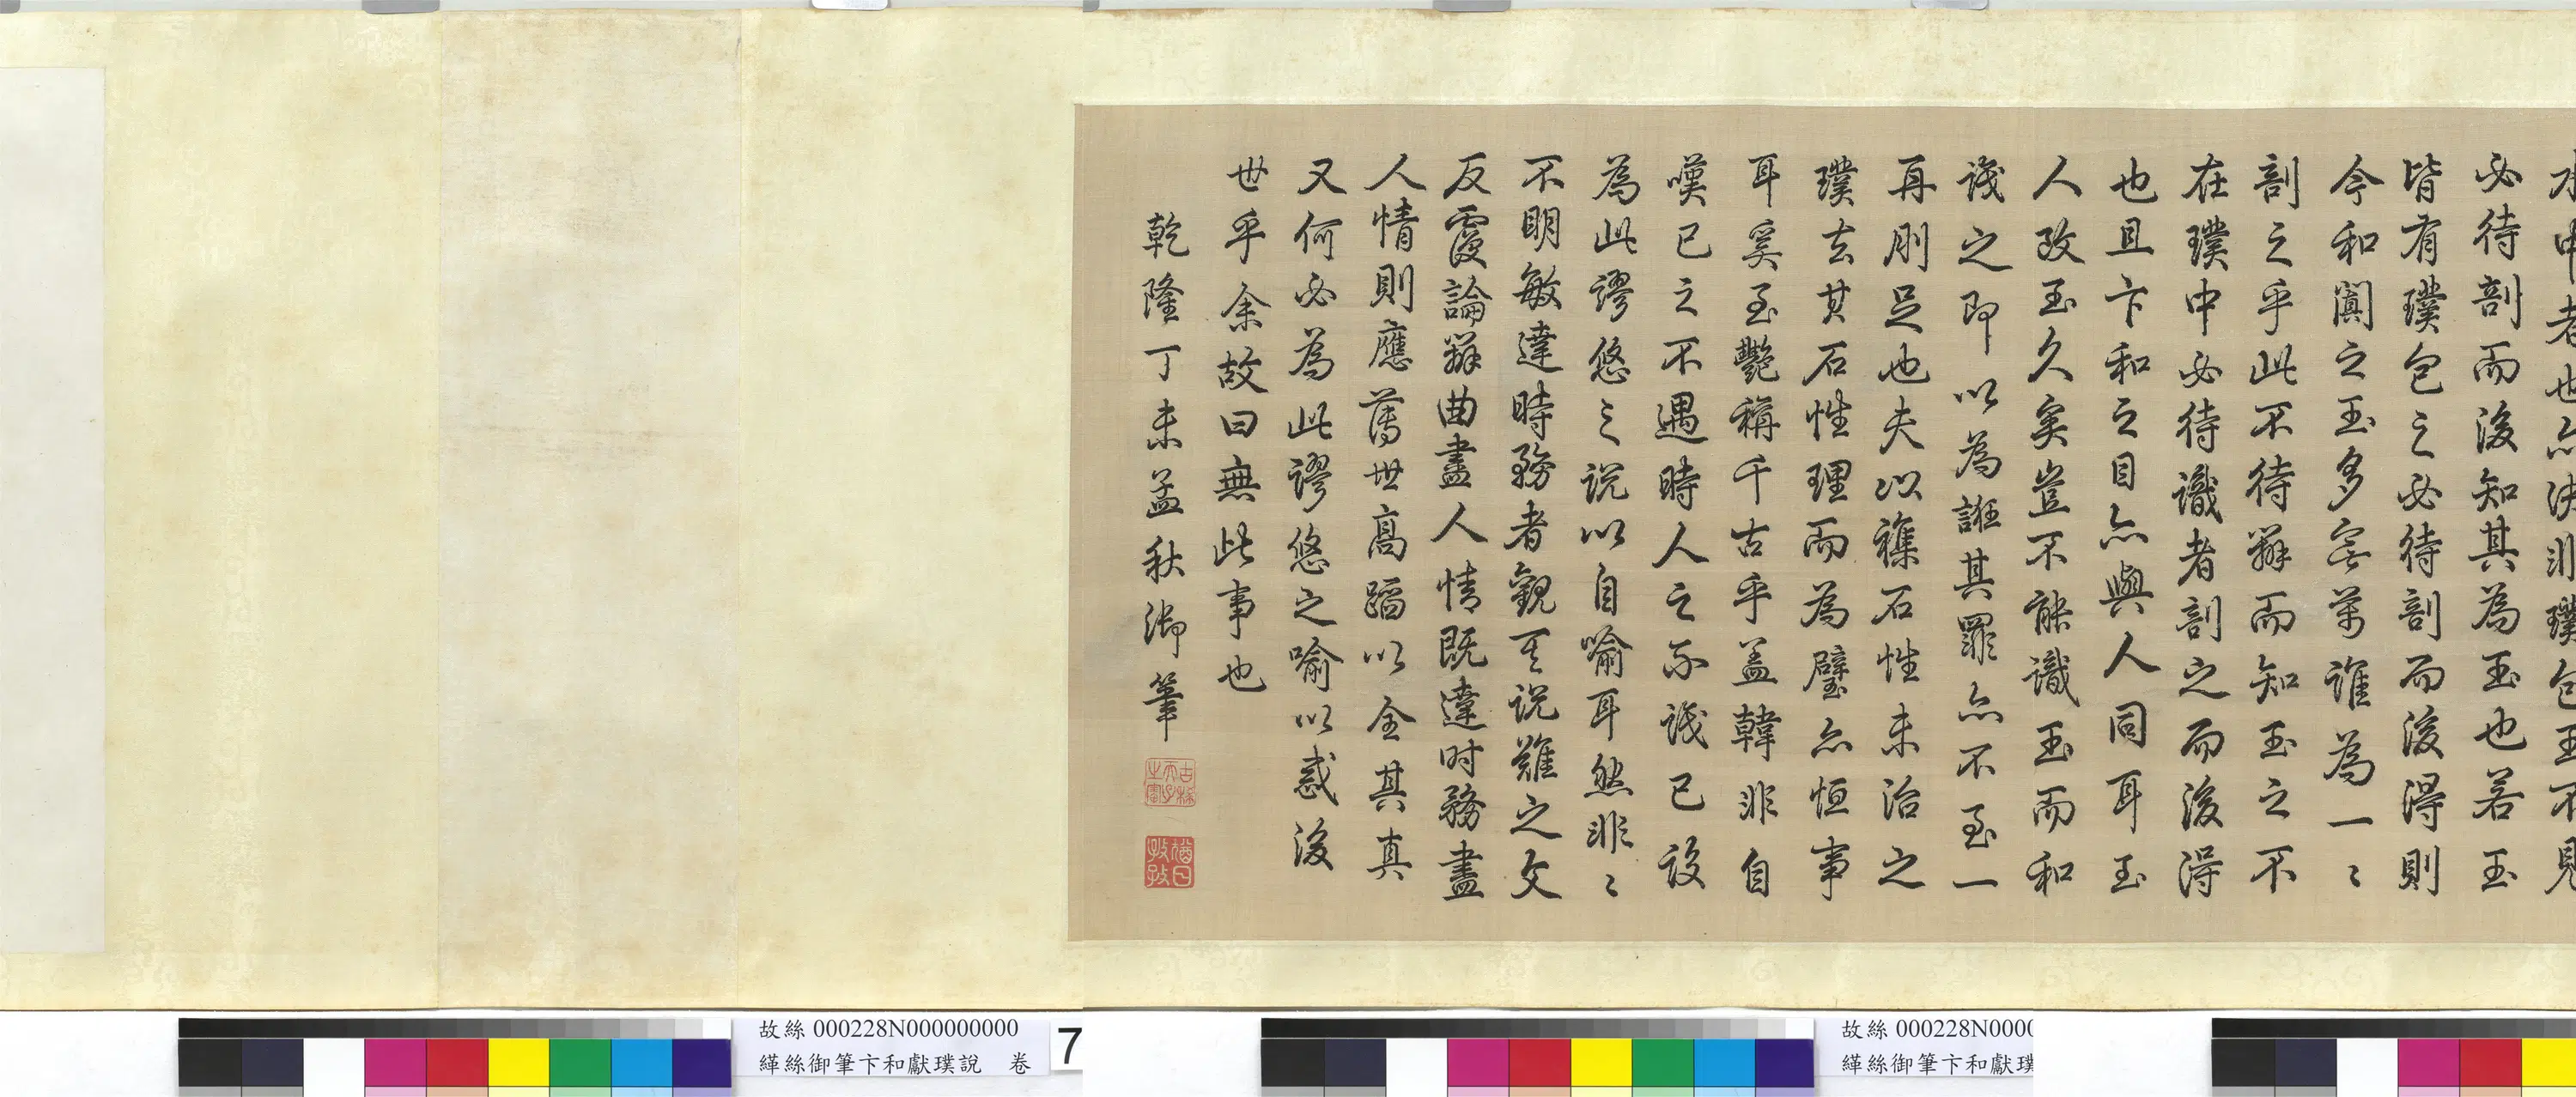 水中者也亦決非璞包玉不見
必待剖而後知其為玉也若玉
皆有璞包之必待剖而後得則
今和闐之玉多寀萬誰為一〻
剖之乎此不待辨而知玉之不
在璞中必待識者剖之而後得
也且卞和之目亦與人同耳玉
人攻玉久矣豈不能識玉而和
識之即以為誑其罪亦不至一
再刖足也夫以襍石性未治之
璞去其石性理而為璧亦恒事
耳奚至艷稱千古乎蓋韓非自
嘆己之不遇時人之不識己設
為此謬悠之說以自喻耳然非〻
不明敏達時務者觀其說難之文
反覆論辨曲盡人情既達时務盡
人情則應薄世高蹈以全其真
又何必為此謬悠之喻以惑後
世乎余故曰無此事也
乾隆丁未孟秋御筆
古稀天子之寶
猶日孜孜
故絲 000228N000000000
緙絲御筆卞和獻璞說 卷
7
故絲 000228N0000
緙絲御筆卞和獻璞